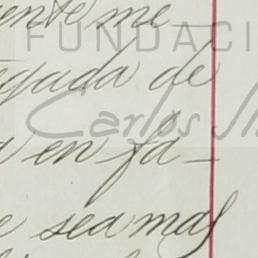 ente me-
FUNDACI
gada de
Carlos Sl
a en fa-
e sea mas